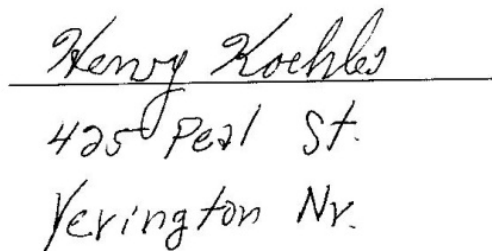 Henry Koehler
425 Pearl St.
Yerington Nv.